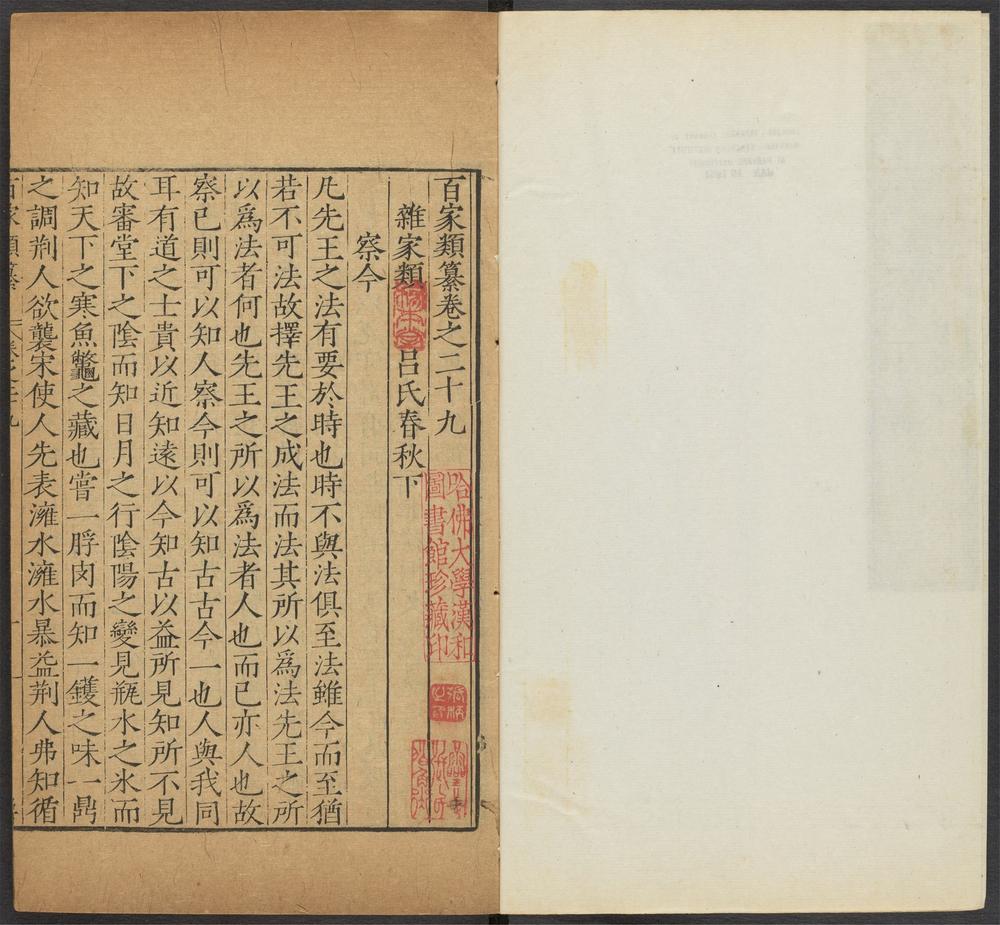 百家類纂卷之二十九
雜家類 呂氏春秋下
察今
凡先王之法有要於時也時不與法俱至法雖今而至猶
若不可法故擇先王之成法而法其所以爲法先王之所
以爲法者何也先王之所以爲法者人也而已亦人也故
察已則可以知人察今則可以知古古今一也人與我同
耳有道之士貴以近知遠以今知古以益所見知所不見
故審堂下之陰而知日月之行陰陽之變見瓶水之氷而
知天下之寒魚鼈之藏也嘗一脟肉而知一鑊之味一鼎
之調荆人欲襲宋使人先表澭水澭水暴益荆人弗知循
百家類纂
哈佛大學漢和
圖書館珍藏印